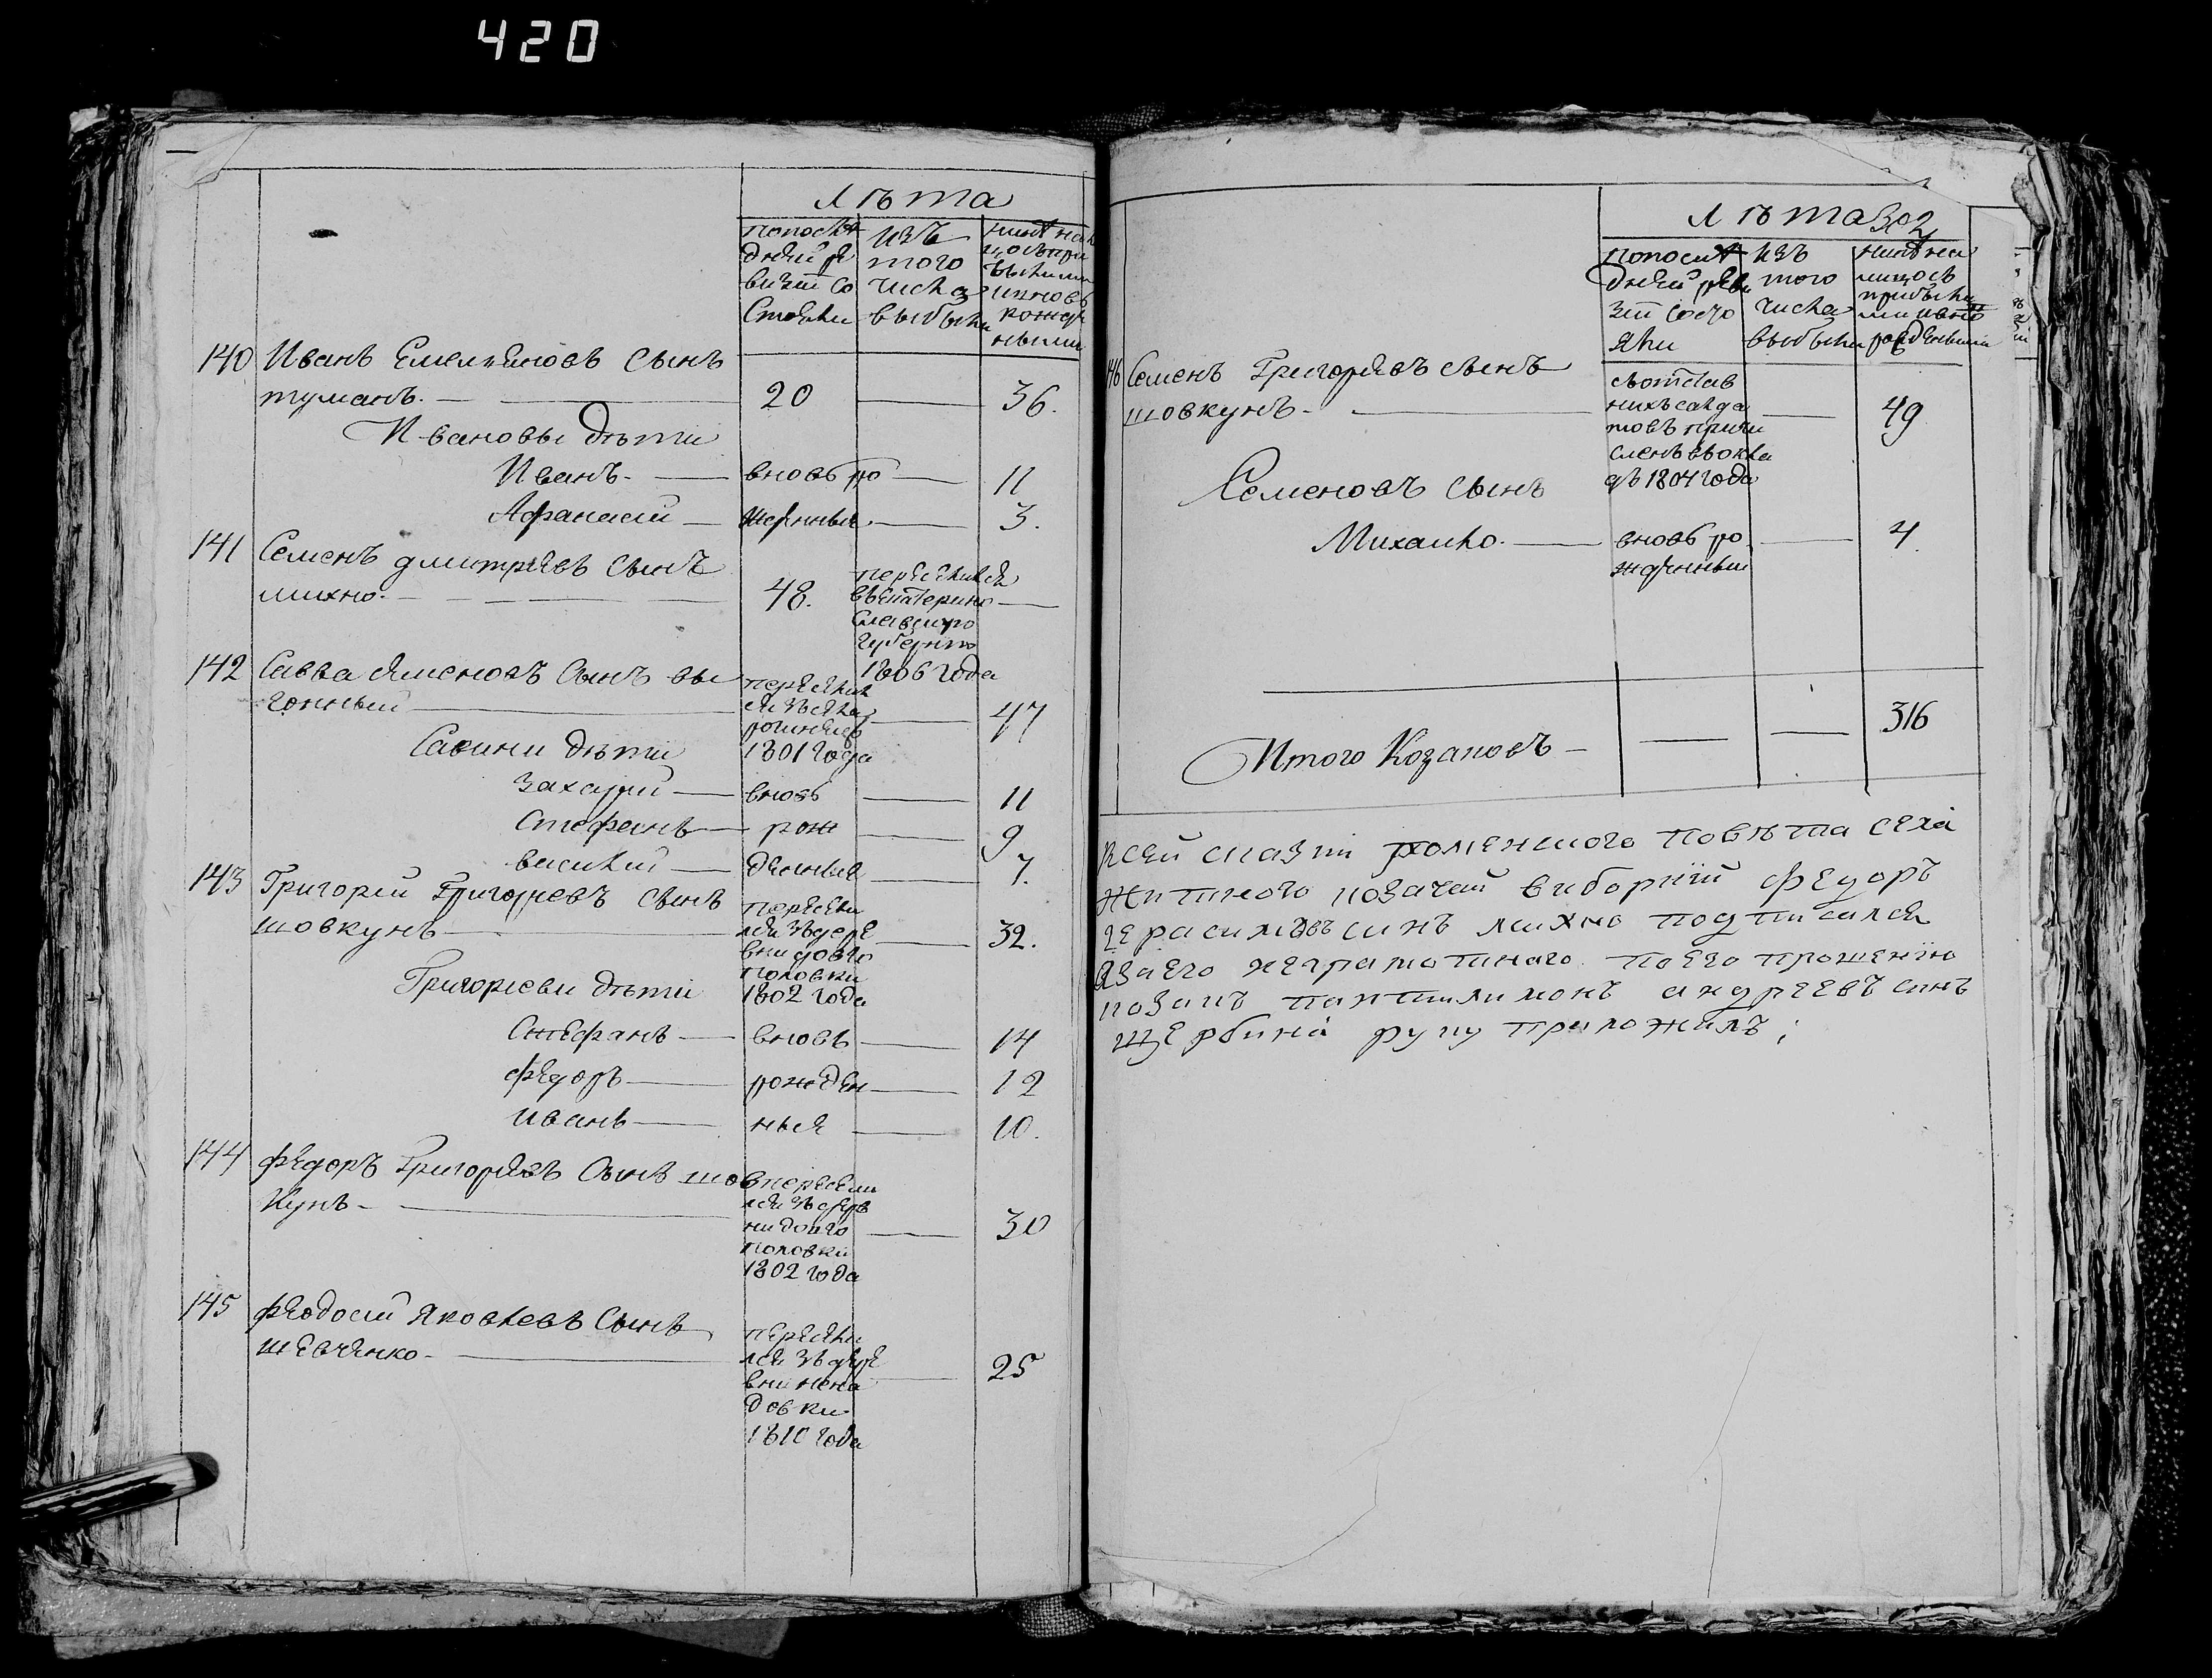 420
лѣта
попослѣ
дней ре
визіи со
стояли
изъ
того
числа
выбыли
140 Иванъ Емельяновъ сынъ
туманъ. — 20 — 36.
Ивановы дѣти
Иванъ. — вновь ро — 11
Афанасей — жденные — 3.
141 Семенъ дмитріевъ сынъ
михно. — 48.
переселился
въ Екатерино —
славскую
губернію
1806 года
142 Савва Семеновъ сынъ вы
гонный — 47
1801 года
Савини дѣти
Захарій — вновь — 11
Стефанъ — рож — 9
василій — денные — 7.
143 Григорій Григорьевъ сынъ
шовкунъ — 32.
пересели
лся зъ дере
вни довго
половки
1802 года
Григориеви дѣти
Стефанъ — вновь — 14
Федоръ — рожден — 12
иванъ — ныя — 10.
144 Федоръ Григорьевъ сынъ шов
кунъ — 30
пересели
лся зъ дерев
ни довго
половки
1802 года
145 Феодосій Яковлевъ сынъ
шевченко — 25
пересели
лся зъ дере
вни
довки
1810 года
лѣта 302
попослѣ
дней реви
зіи состо
яли
изъ
того
числа
выбыли
146 Семенъ Григорьевъ сынъ
шовкунъ — 49
нихъ салда
товъ причи
сленъ въ окла
дъ 1804 года
Семеновъ сынъ
Михайло — вновь ро — 4.
жденный
Итого Козаковъ — 316
всей сказки роменского повѣта села
житного козачій виборний Федоръ
герасимовъ синъ михно подписался
а за его неграмотнаго по его прошенію
козакъ пантилимонъ андреевъ синъ
щербина руку приложилъ;